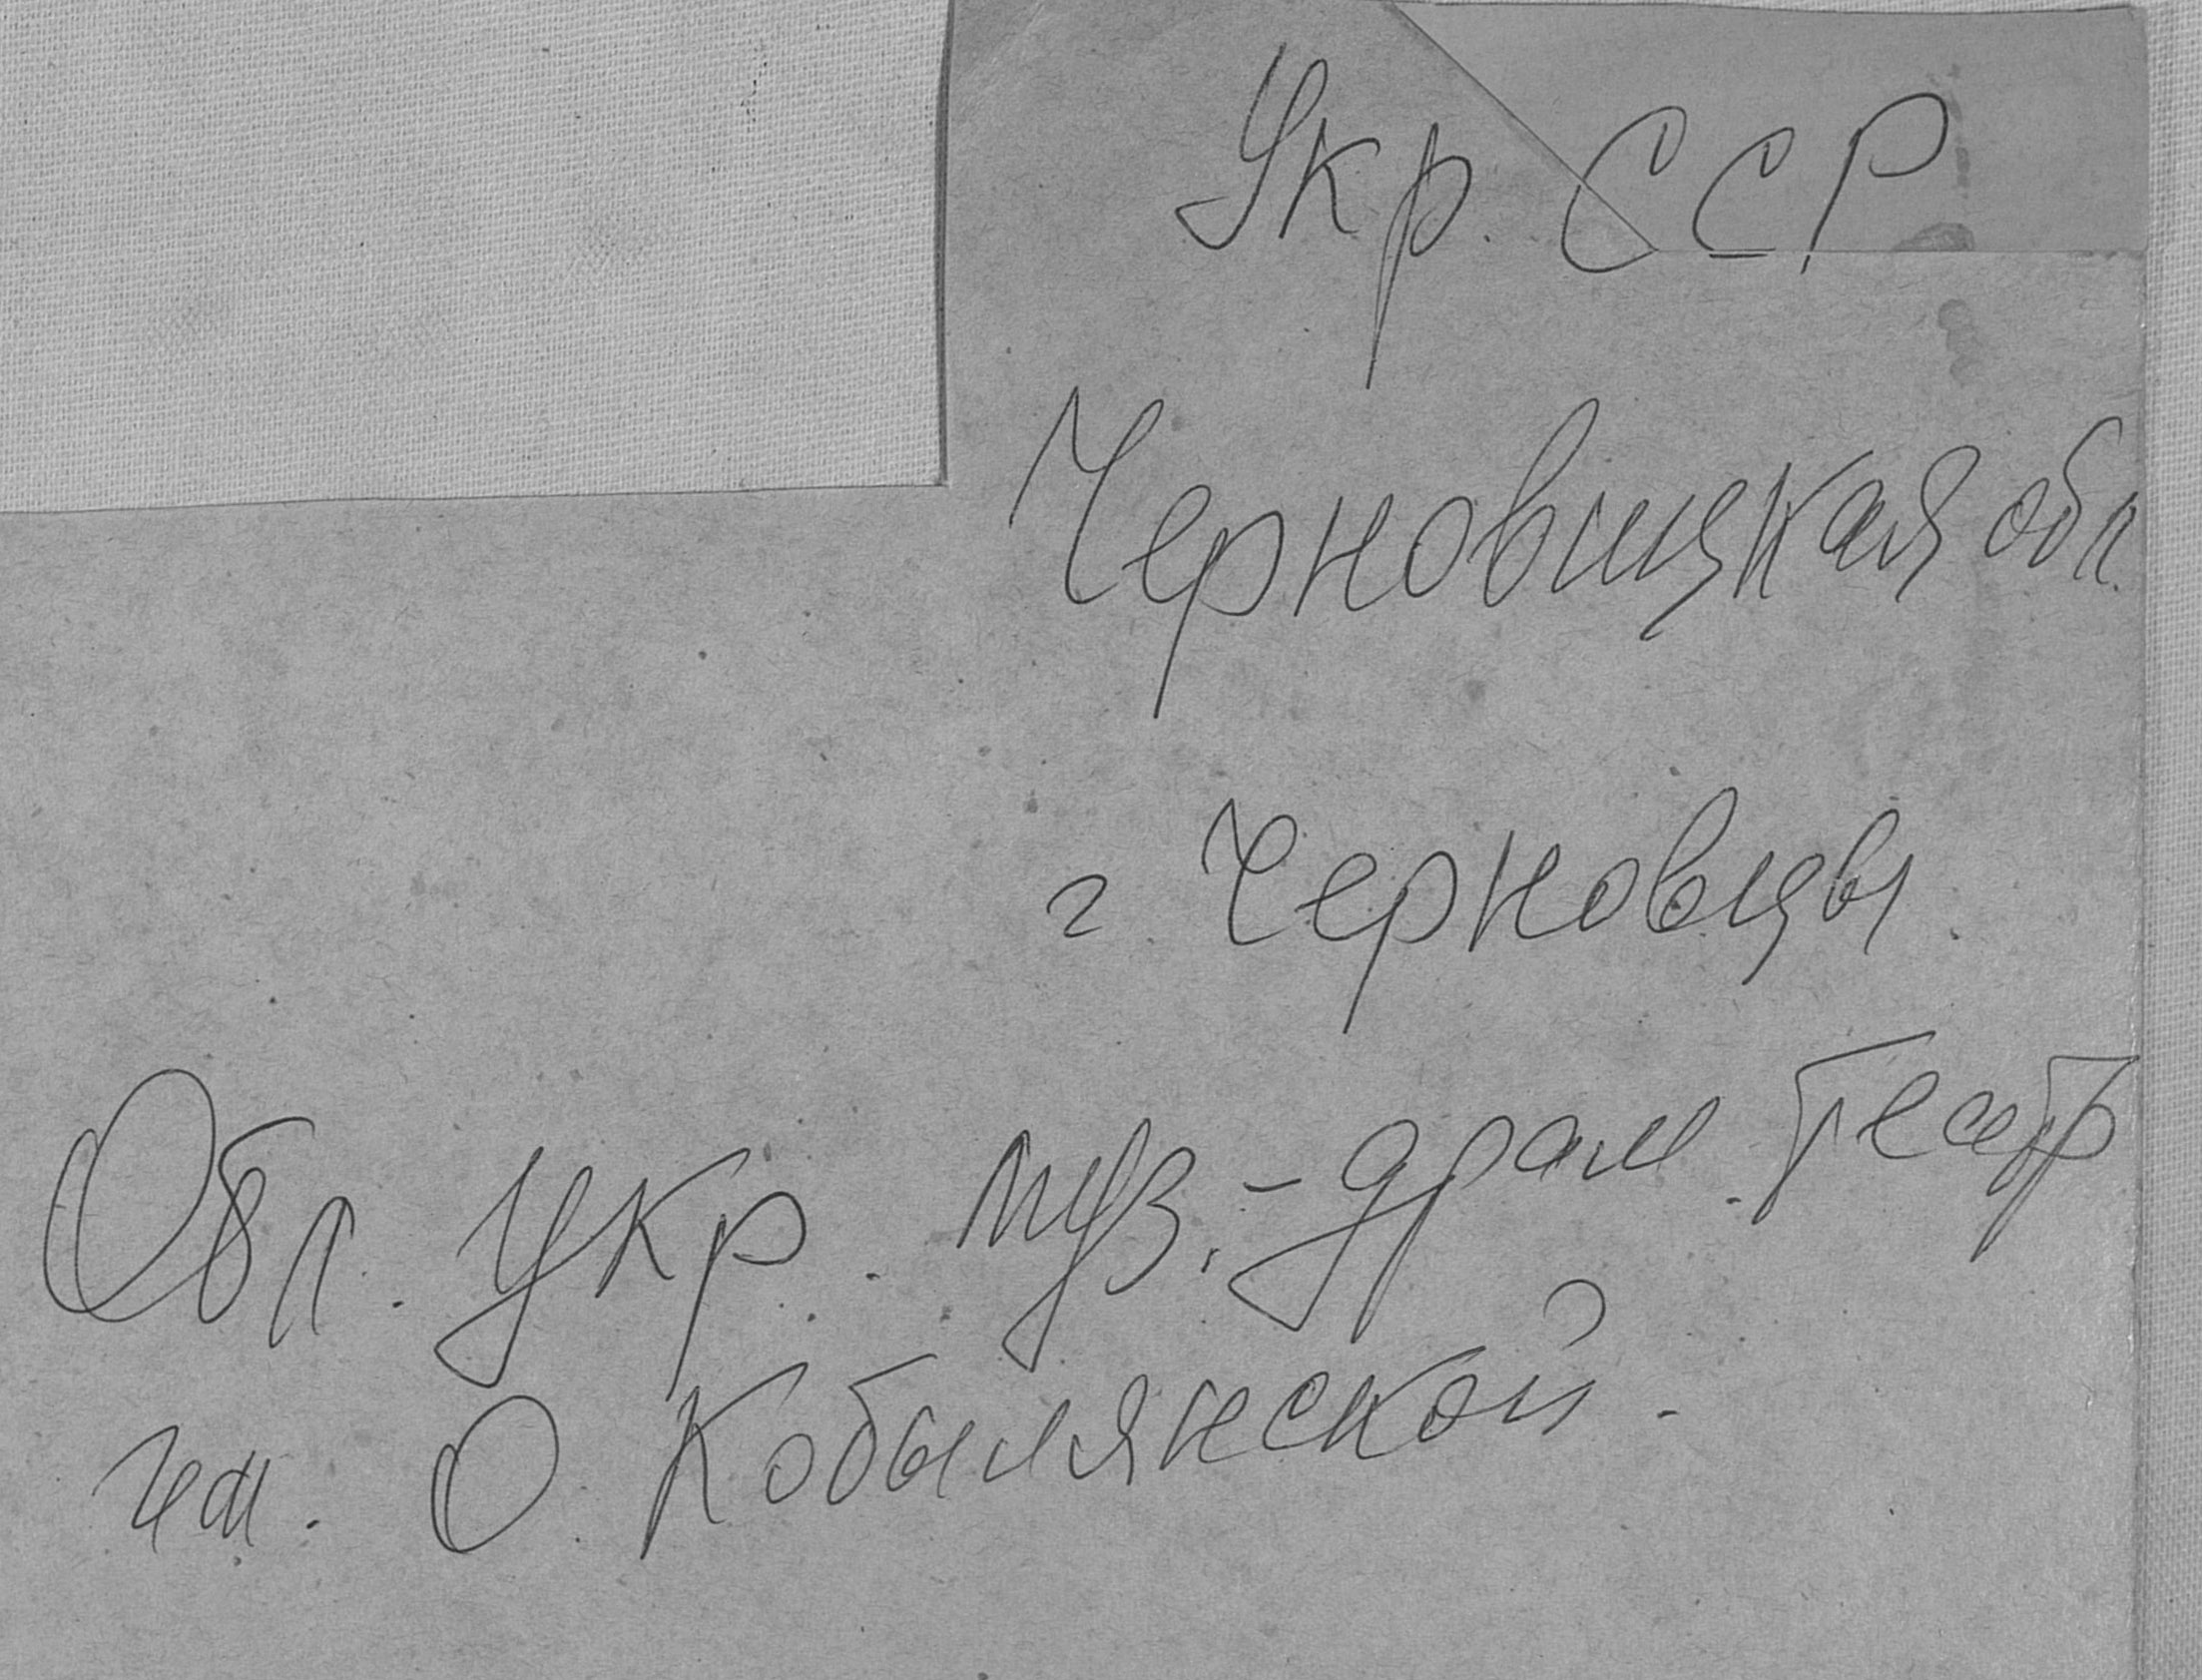 Укр. ССР
Черновицкая обл.
г. Черновцы.
Обл. укр. муз.-драм. театр
им. О. Кобылянской.